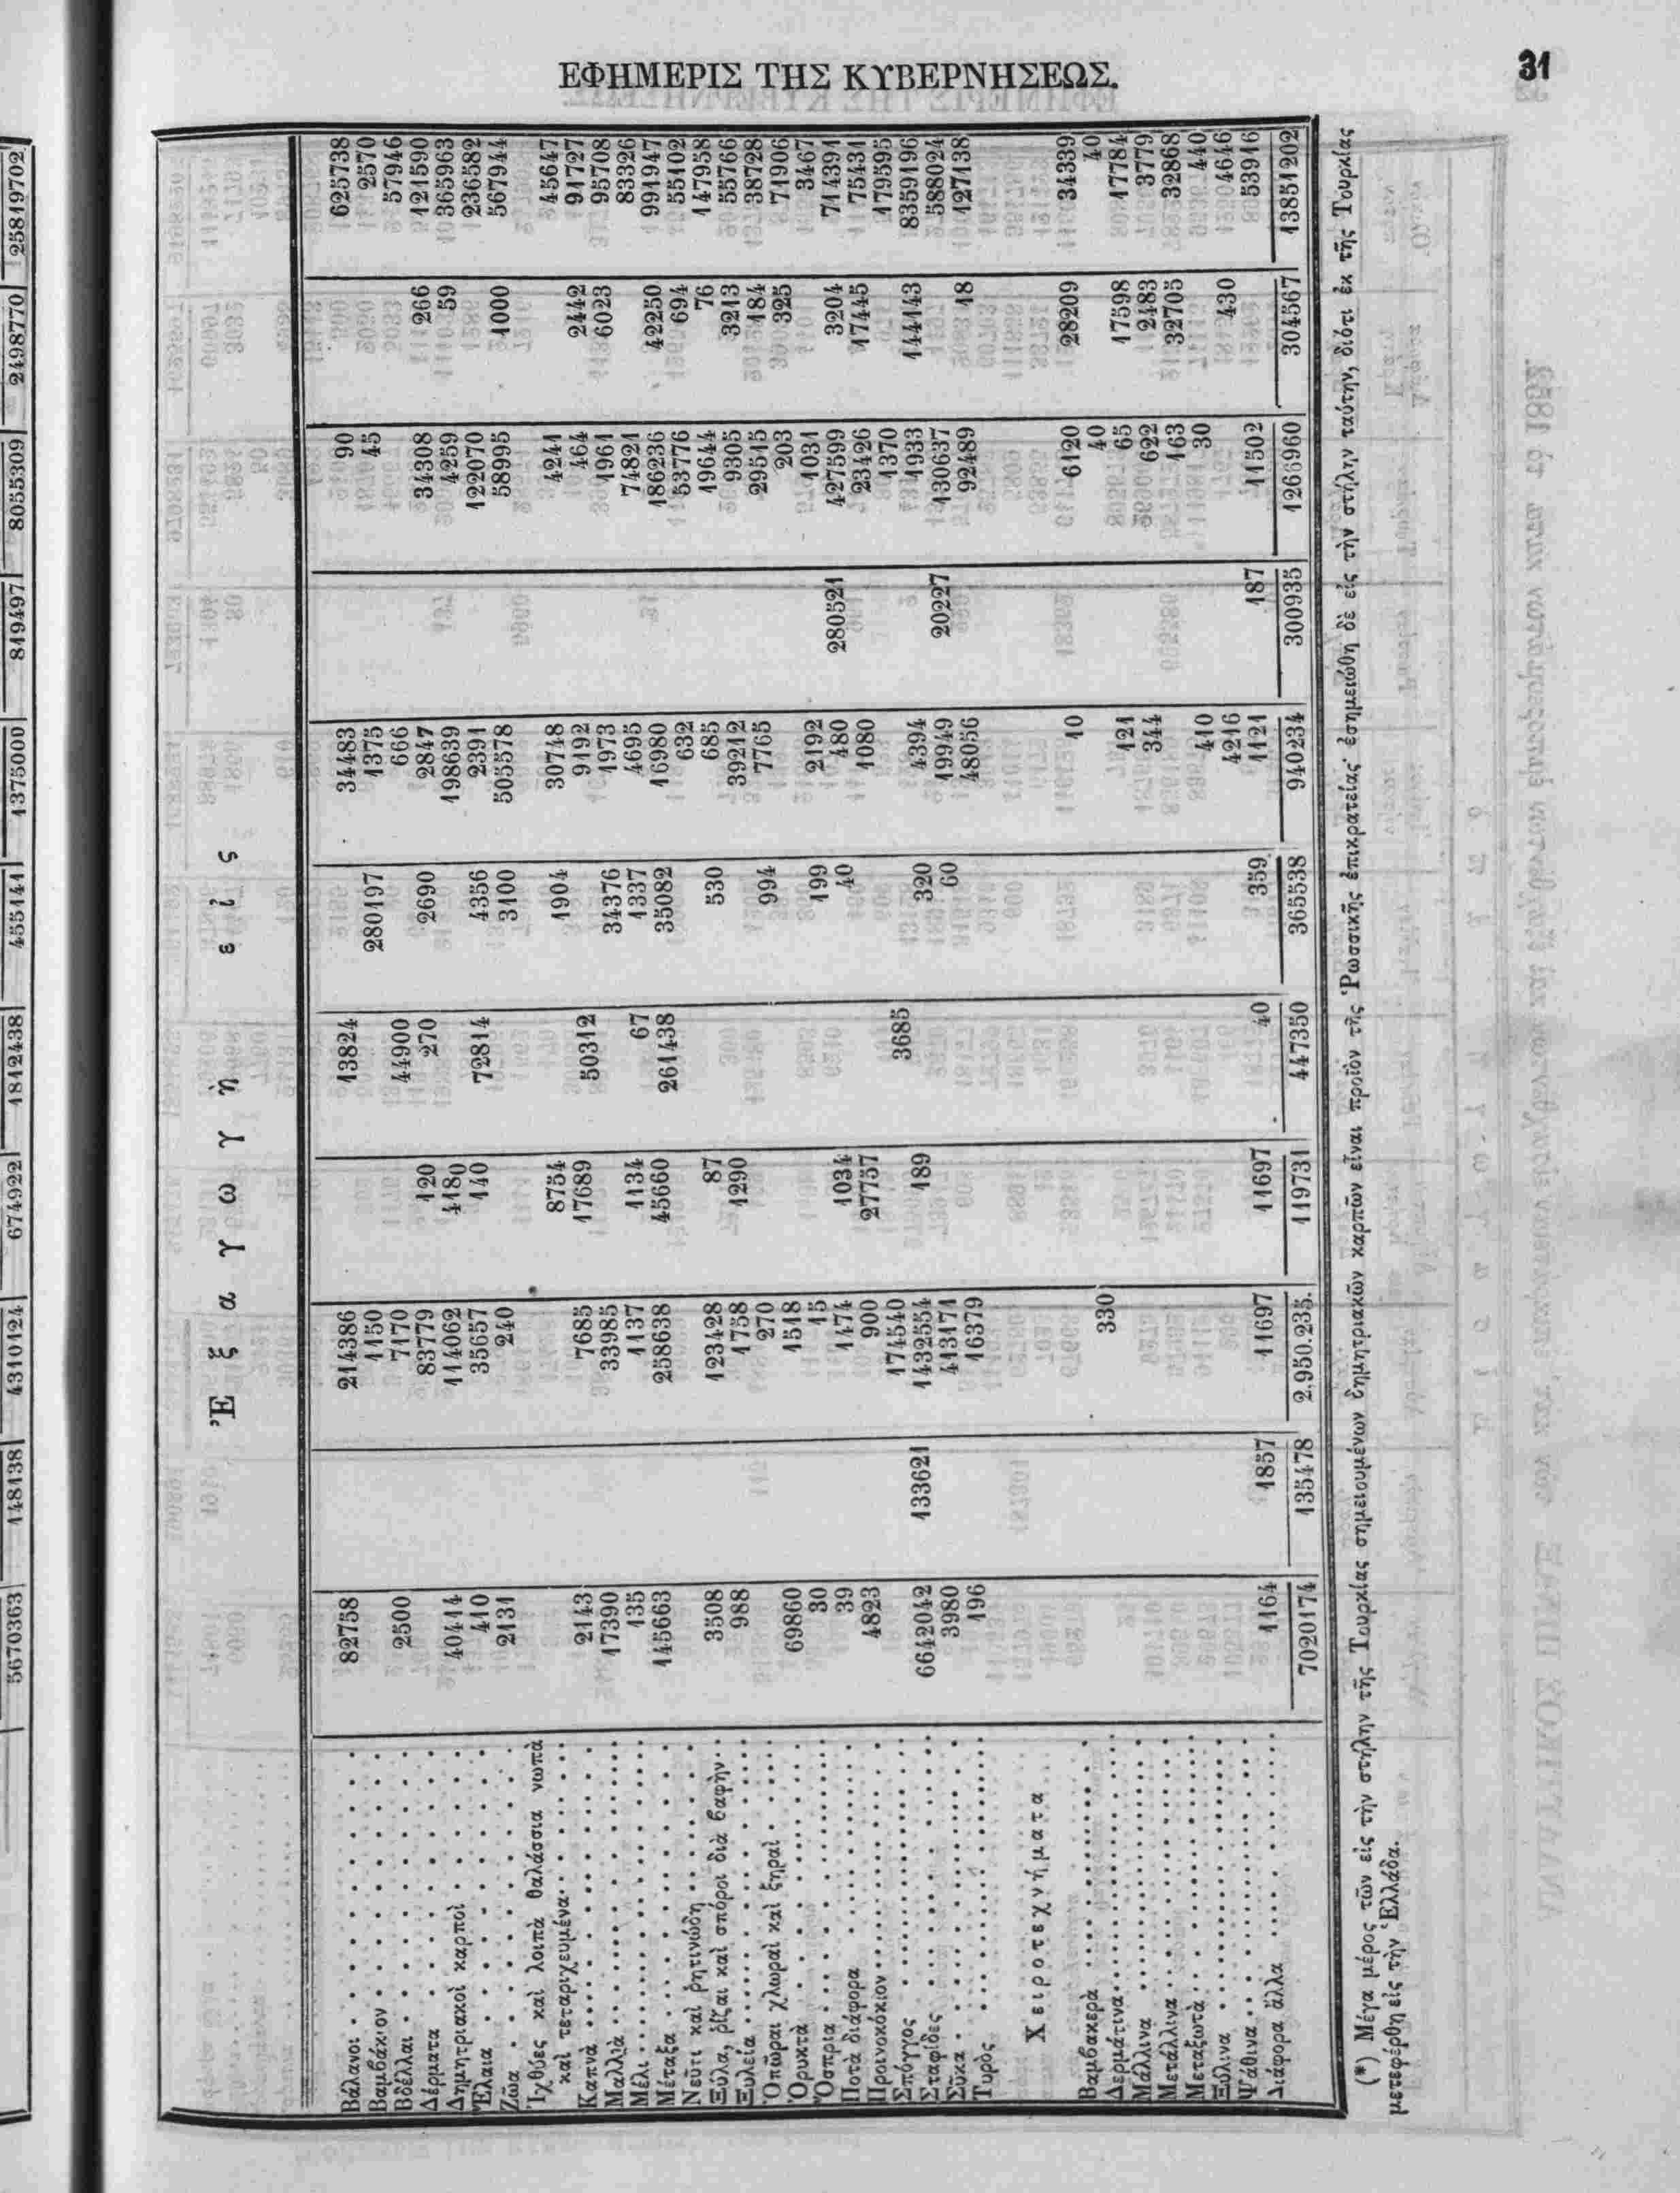 5670363 148138 4310124 674922 1842438 455141 1375000 849497 8055309 2498770 25819702
ΕΦΗΜΕΡΙΣ ΤΗΣ ΚΥΒΕΡΝΗΣΕΩΣ.
31
Ἐξαγωγὴ εἰς
Βάλανοι 82758 214386 13824 280197 34483 90 625738
Βαμβάκιον 1150 1375 45 2570
Βδέλλαι 2500 7170 44900 2690 666 57946
Δέρματα 83779 120 270 2847 34308 266 121590
Δημητριακοὶ καρποὶ 40414 114062 4180 4356 198639 4259 59 365963
Ἔλαια 410 35657 140 72814 3100 2391 122070 236582
Ζῶα 2131 240 505578 58995 1000 567944
Ἰχθύες καὶ λοιπὰ θαλάσσια νωπὰ
καὶ τεταριχευμένα 8754 1904 30748 4241 45647
Καπνὰ 2143 7685 17689 50312 9192 464 2442 91727
Μαλλιὰ 17390 33985 34376 1973 1961 6023 95708
Μέλι 135 1137 1134 67 1337 4695 74821 83326
Μέταξα 145663 258638 45660 261438 35082 16980 186236 42250 991947
Νεῦτι καὶ ῥητινώδη 632 53776 694 55102
Ξύλα, ῥίζαι καὶ σπόροι διὰ βαφὴν 3508 123428 87 530 685 19644 76 147958
Ξυλεία 988 1758 1290 39212 9305 3213 55766
Ὀπῶραι χλωραὶ καὶ ξηραὶ 270 994 7765 29515 184 38728
Ὀρυκτὰ 69860 1518 203 325 71906
Ὄσπρια 30 15 199 2192 1031 3467
Ποτὰ διάφορα 39 1474 1034 40 480 280521 427599 3204 714391
Προινοκόκιον 4823 900 27757 1080 23426 17445 75431
Σπόγγος 174540 3685 1370 179595
Σταφίδες 6642042 133621 1432554 189 320 4394 1933 144143 8359196
Σῦκα 3980 413171 60 19949 20227 130637 588024
Τυρὸς 196 16379 48056 92489 18 127138
Χειροτεχνήματα
Βαμβακερὰ 10 6120 28209 34339
Δερμάτινα 40 40
Μάλλινα 121 65 17598 17784
Μετάλλινα 330 344 622 2483 3779
Μεταξωτὰ 163 32705 32868
Ξύλινα 410 30 440
Ψάθινα 4216 430 4646
Διάφορα ἄλλα 1164 1857 11697 11697 40 359 1121 187 11502 53916
7020174 135478 2,950.235. 119731 447350 365538 940234 300935 1266960 304567 13851202
(*) Μέγα μέρος τῶν εἰς τὴν στήλην τῆς Τουρκίας σημειουμένων δημητριακῶν καρπῶν εἶναι προϊὸν τῆς Ῥωσσικῆς ἐπικρατείας· ἐσημειώθη δὲ εἰς τὴν στήλην ταύτην, διότι ἐκ τῆς Τουρκίας
μετεφέρθη εἰς τὴν Ἑλλάδα.